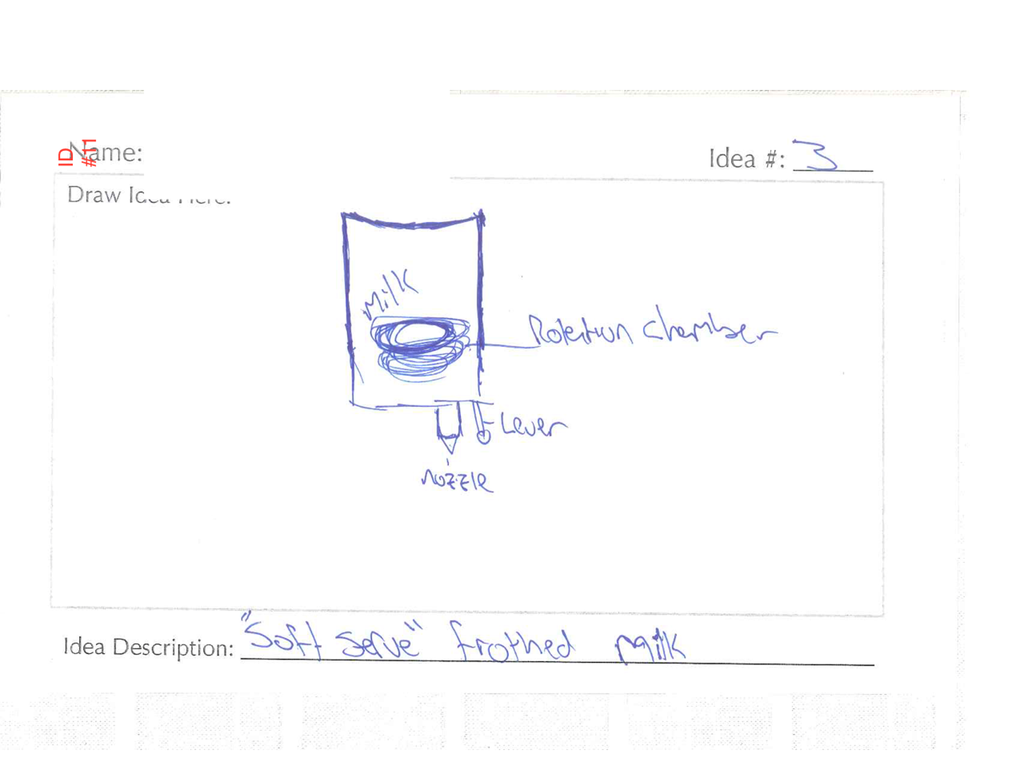 ID
#11
Name:
Idea #: 3
Draw Idea Here:
Milk
Rotation chamber
Lever
nozzle
Idea Description: "Soft serve" frothed milk